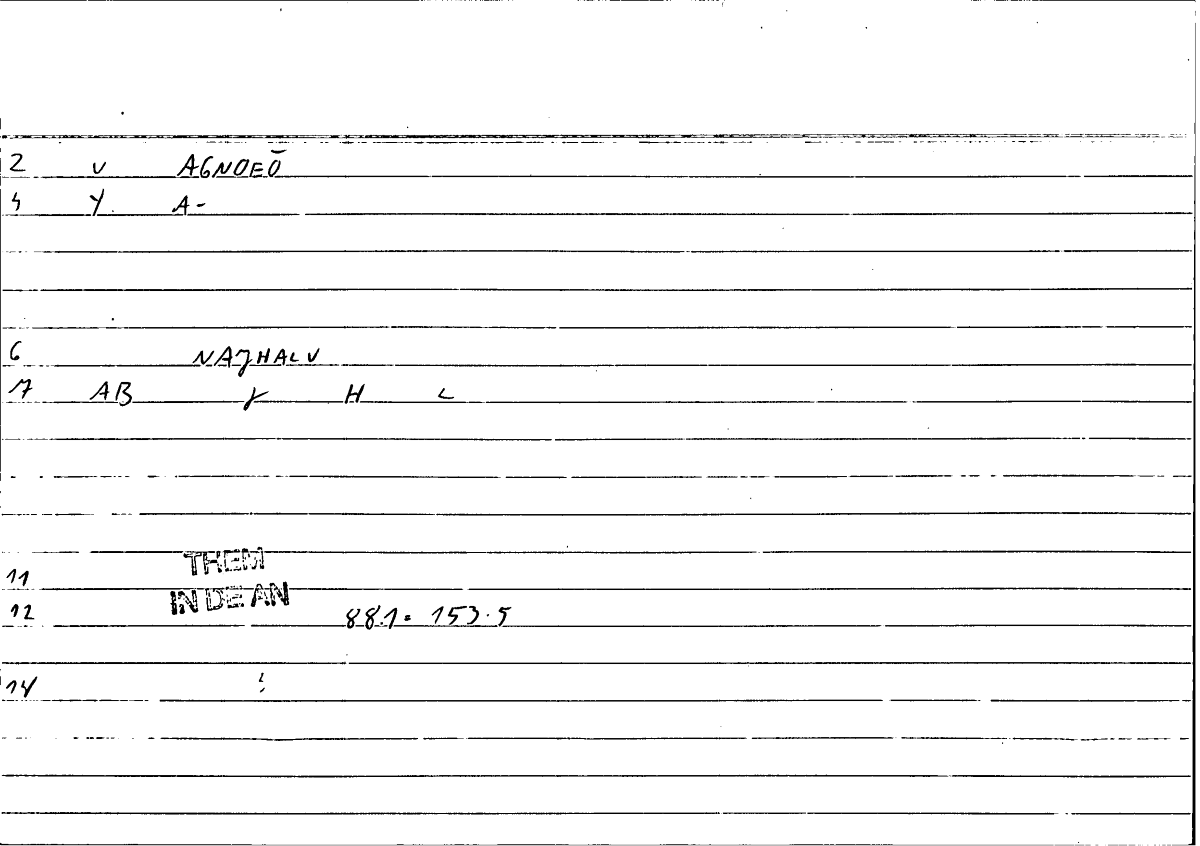 2 V AGNOEŌ
4 Y A-
6 NAJHALV
17 AB γ H L
11 THEM
12 IN DE AN 881 = 153.5
14